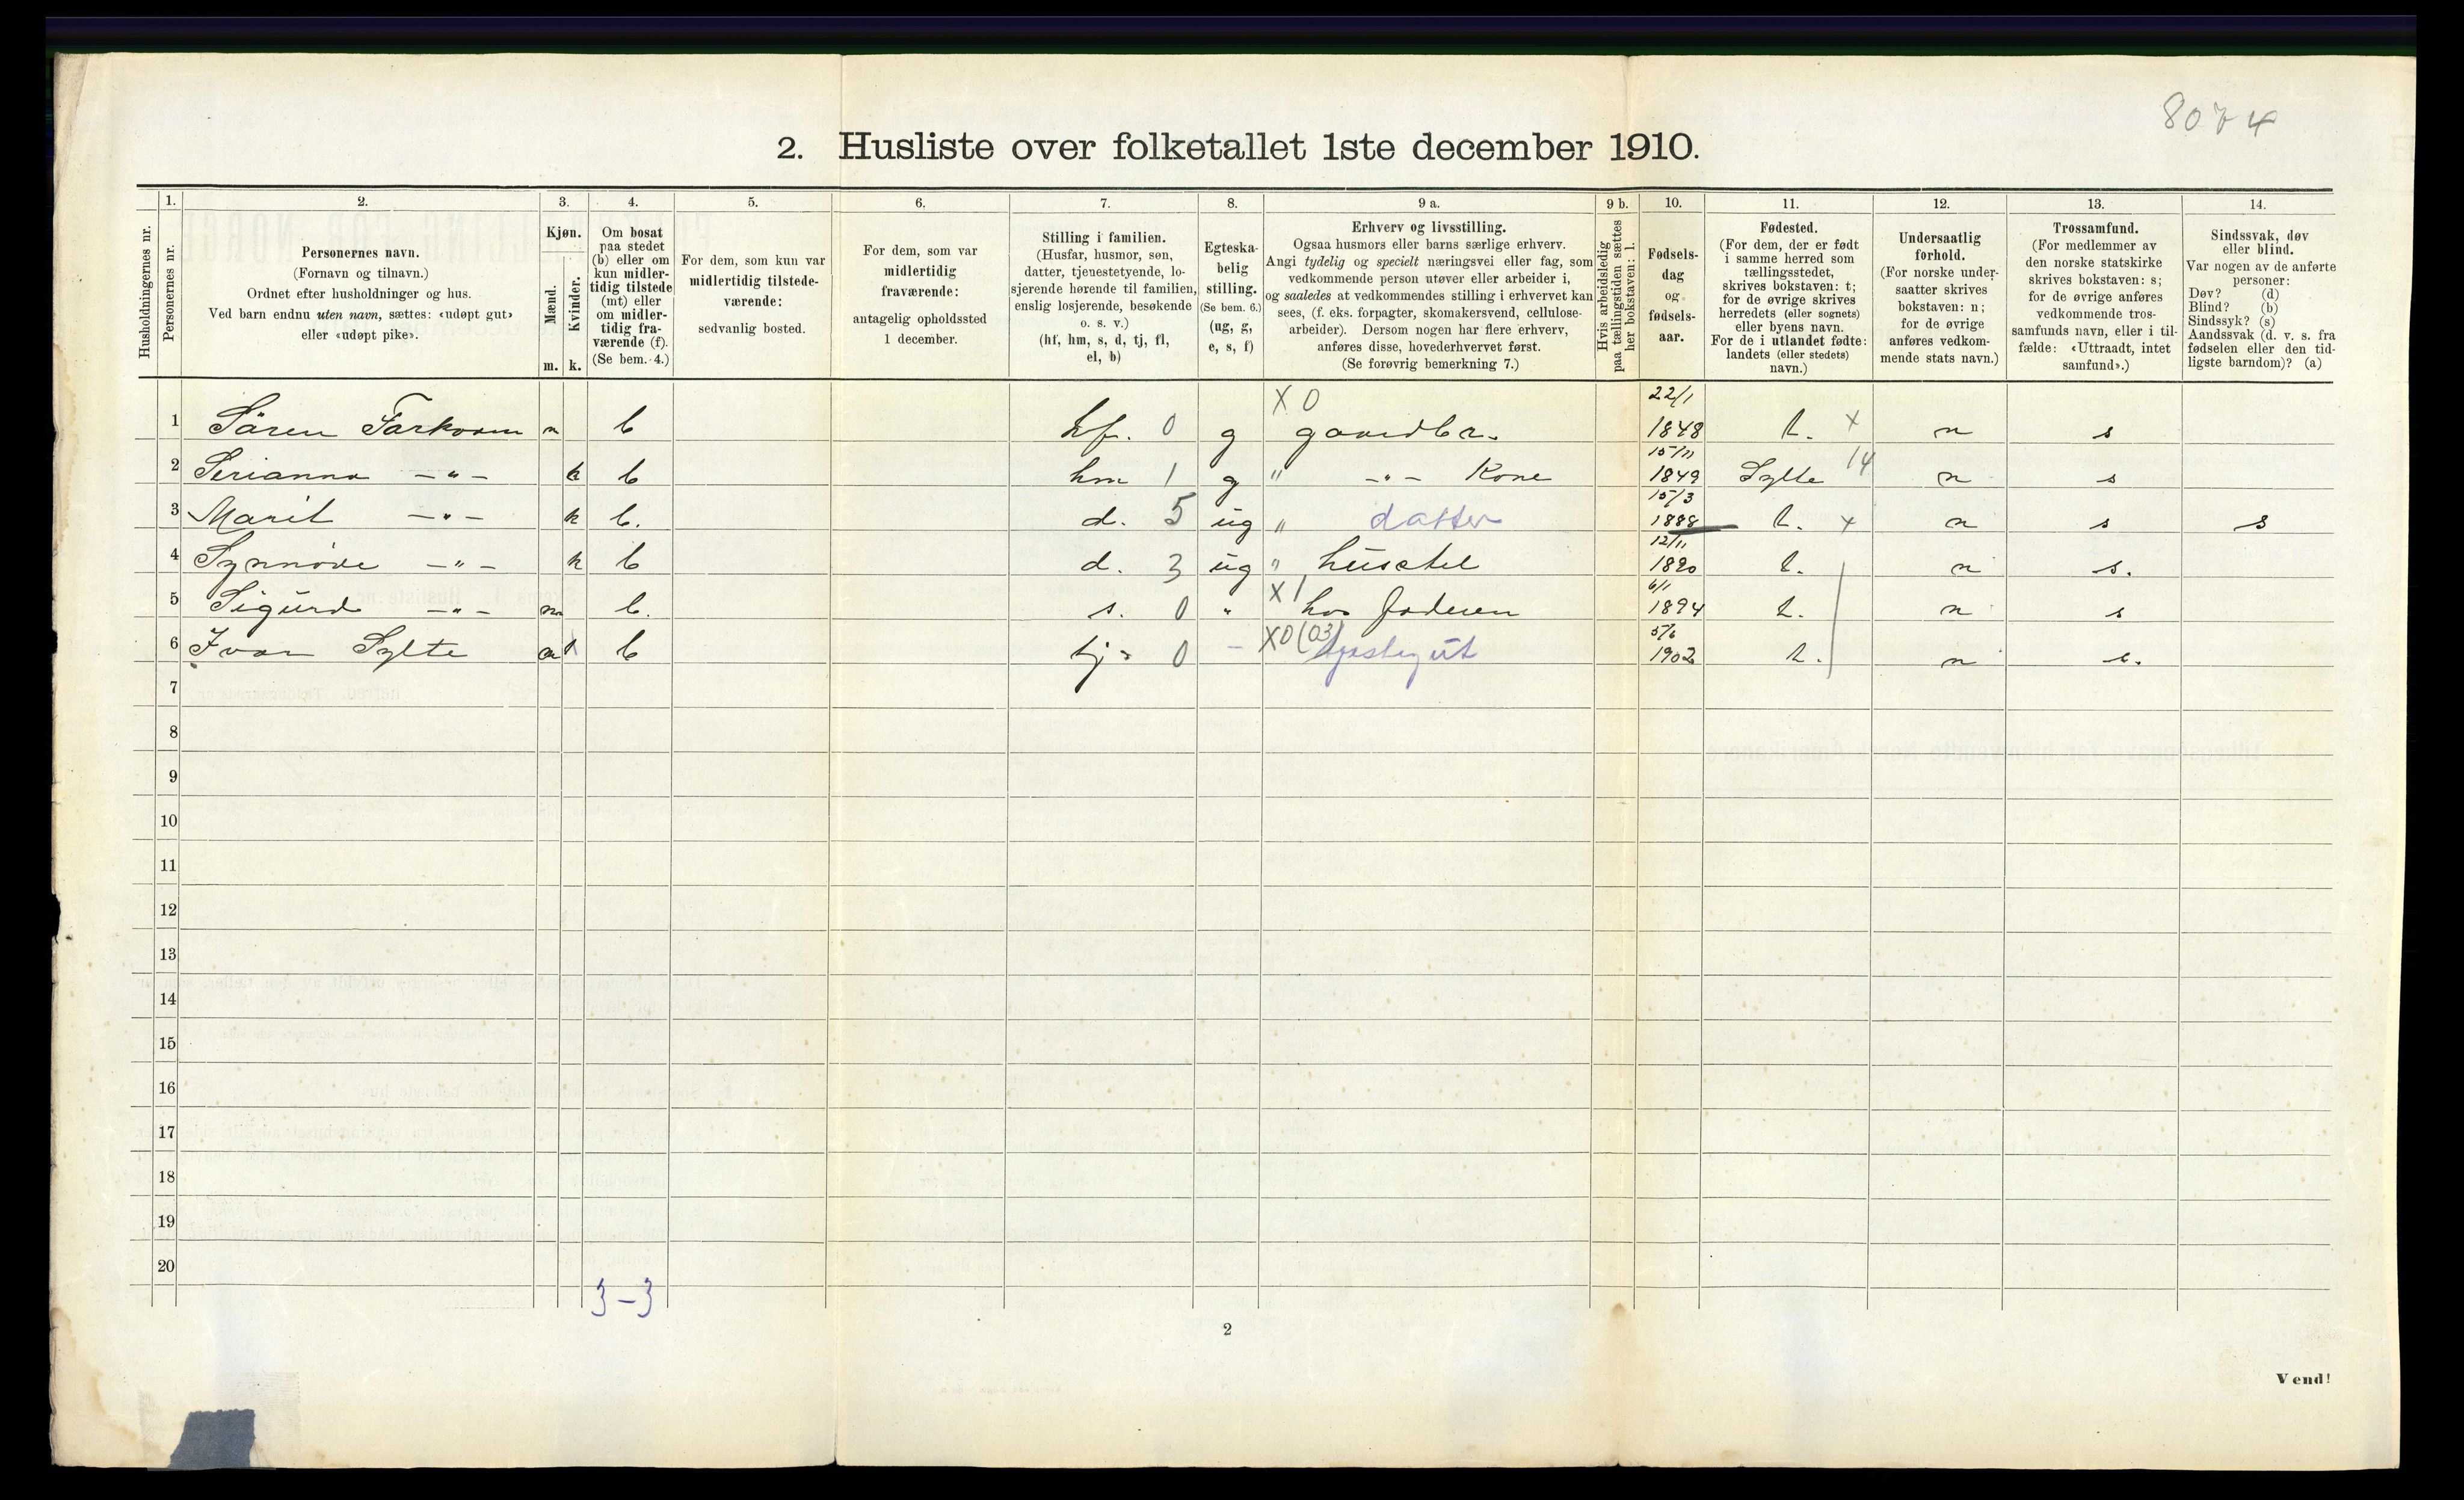 8074
2. Husliste over folketallet 1ste december 1910.
Husholdningernes nr.
1.
Personernes nr.
2.
Personernes navn.
(Fornavn og tilnavn.)
Ordnet efter husholdninger og hus.
Ved barn endnu uten navn, sættes: «udøpt gut»
eller «udøpt pike».
3.
Kjøn.
Mænd.
Kvinder.
m. k.
4.
Om bosat
paa stedet
(b) eller om
kun midler-
tidig tilstede
(mt) eller
om midler-
tidig fra-
værende (f).
(Se bem. 4.)
5.
For dem, som kun var
midlertidig tilstede-
værende:
sedvanlig bosted.
6.
For dem, som var
midlertidig
fraværende:
antagelig opholdssted
1 december.
7.
Stilling i familien.
(Husfar, husmor, søn,
datter, tjenestetyende, lo-
sjerende hørende til familien,
enslig losjerende, besøkende
o. s. v.)
(hf, hm, s, d, tj, fl,
el, b)
8.
Egteska-
belig
stilling.
(Se bem. 6.)
(ug, g,
e, s, f)
9 a.
Erhverv og livsstilling.
Ogsaa husmors eller barns særlige erhverv.
Angi tydelig og specielt næringsvei eller fag, som
vedkommende person utøver eller arbeider i,
og saaledes at vedkommendes stilling i erhvervet kan
sees, (f. eks. forpagter, skomakersvend, cellulose-
arbeider). Dersom nogen har flere erhverv,
anføres disse, hovederhvervet først.
(Se forøvrig bemerkning 7.)
9 b.
Hvis arbeidsledig
paa tællingstiden sættes
her bokstaven: l.
10.
Fødsels-
dag
og
fødsels-
aar.
11.
Fødested.
(For dem, der er født
i samme herred som
tællingsstedet,
skrives bokstaven: t;
for de øvrige skrives
herredets (eller sognets)
eller byens navn.
For de i utlandet fødte:
landets (eller stedets)
navn.)
12.
Undersaatlig
forhold.
(For norske under-
saatter skrives
bokstaven: n;
for de øvrige
anføres vedkom-
mende stats navn.)
13.
Trossamfund.
(For medlemmer av
den norske statskirke
skrives bokstaven: s;
for de øvrige anføres
vedkommende tros-
samfunds navn, eller i til-
fælde: «Uttraadt, intet
samfund».)
14.
Sindssvak, døv
eller blind.
Var nogen av de anførte
personer:
Døv? (d)
Blind? (b)
Sindssyk? (s)
Aandssvak (d. v. s. fra
fødselen eller den tid-
ligste barndom)? (a)
1 Sören m b hf. 0 g X 0 gaardbr. 22/1 1848 t. x n s
2 Serianna -"- k b hm 1 g " -"- Kone 15/11 1849 Sylte 14 n s
3 Marit -"- k b. d. 5 ug " datter 15/3 1888 t. x n s s
4 Synnöve -"- k b d. 3 ug " husstel 12/11 1890 t. n s.
5 Sigurd -"- m b. s. 0 " X1 hos faderen 6/1 1894 t. n s
6 Ivar Sylte m b tj. 0 - X0 (03) 5/6 1902 t. n s.
7
8
9
10
11
12
13
14
15
16
17
18
19
20
3-3
2
Vend!